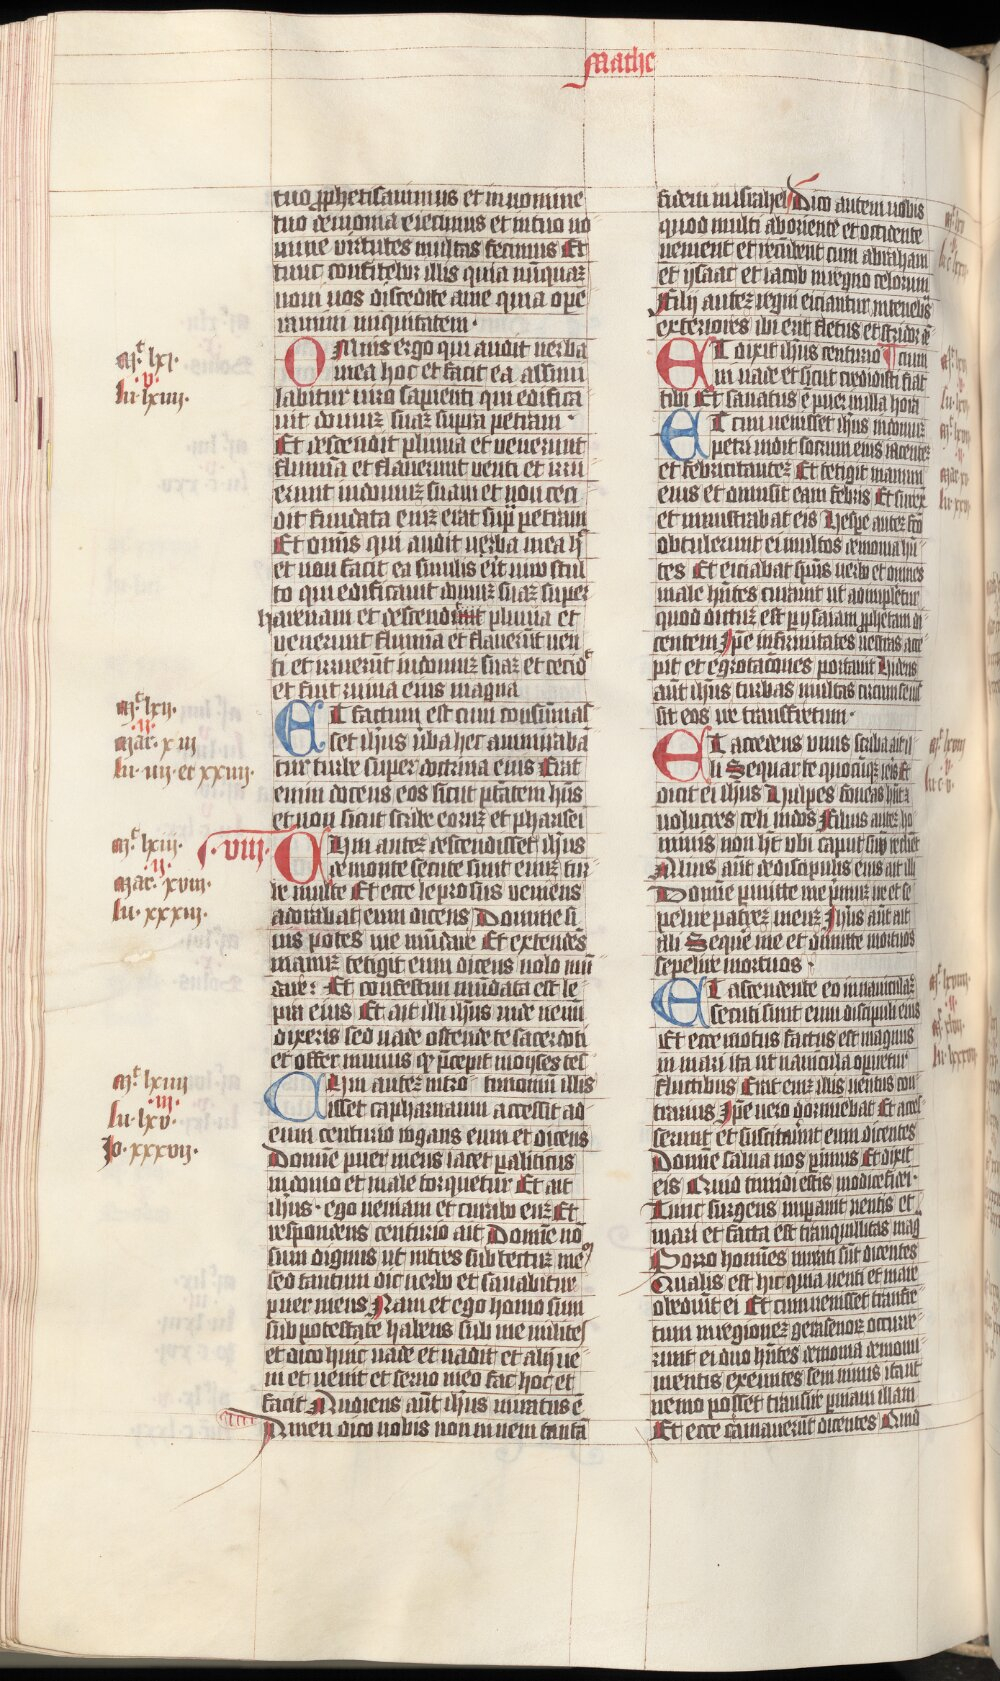 Mathe
tuo ꝓphetisauimus et in nomine
tuo demonia eiecimus et in tuo no
mine virtutes multas fecimus Et
tunc confitebor illis quia nūquaꝫ
noui vos discedite a me qui ope
ramini iniquitatem ·
OMnis ergo qui audit verba
mea hec et facit ea assimi
labitur viro sapienti qui edifica
uit domuꝫ suaꝫ supra petram ·
Et descendit pluuia et venerunt
flumina et flauerunt venti et irru
erunt in domuꝫ suam et non ceci
dit fundata eniꝫ erat suꝑ petram
Et omīs qui audit verba mea h̄
et non facit ea similis erit viro stul
to qui edificauit domuꝫ suaꝫ super
harenam et descendit pluuia et
venerunt flumina et flauerūt ven
ti et irruerūt in domuꝫ suaꝫ et cecid᷒
et fuit ruina eius magna
ET factum est cum consūmas
set ihūs v̄ba hec ammiraba
tur turbe super doctrina eius Erat
enim docens eos sicut ptātem hn̄s
et non sicut scribe eorū et pharisei
·viii· CUm auteꝫ descendisset ihūs
de monte secute sunt eum tur
be multe Et ecce leprosus veniens
adorabat eum dicens Domine si
uis potes me mūdare Et extendēs
manuꝫ tetigit eum dicens volo mū
dare · Et confestim mūdata est le
pra eius Et ait illi ihūs vide nemi
dixeris sed vade ostende te sacerdoti
et offer munus qđ p̄cepit moyses tes
CUm auteꝫ intro in illis
isset capharnaum accessit ad
eum centurio rogans eum et dicens
Domine puer meus iacet paliticus
in domo et male torquetur Et ait
ihūs · ego veniam et curabo euꝫ Et
respondens centurio ait Domīe nō
sum dignus ut intres sub tectuꝫ me᷒
sed tantum dic verbo et sanabitur
puer meus Nam et ego homo sum
sub potestate habens sub me milites
et dico huic vade et vadit et alij ve
ni et venit et seruo meo fac hoc et
facit Audiens aūt ihūs miratus ē
Amen dico vobis non inueni tantā
fidem in israhel Dico autem vobis
quod multi ab oriente et occidente
venient et recūbent cum abraham
et ysaac et iacob in regno celorum
Filij auteꝫ regni eiciantur in tenebs̄
exteriores ibi erit fletus et stridor dē
ET dixit ihūs centurio
in vade et sicut credidisti fiat
tibi Et sanatus ē puer in illa hora
ET cum venisset ihūs in domuꝫ
petri vidit socrum eius iacenteꝫ
et febricitanteꝫ Et tetigit manum
eius et dimisit eam febris Et surex
et ministrabat eis Vespe auteꝫ fcō
obtulerunt ei multos demonia hn̄
tes Et eiciebat spūs verbo et omnes
male hn̄tes curauit ut adimpletur
quod dictuꝫ est p ysaiam ꝓphetam di
centem Ipe infirmitates nostras acce
pit et egrotacōnes portauit Videns
aūt ihūs turbas multas circum se ius
sit eos ire transfretum ·
ET accedens vnus scriba ait il
li Sequar te quocūqꝫ ieris Et
dicit ei ihūs Vulpes foueas hn̄t
volucres celi nidos Filius auteꝫ ho
minis non h̄t vbi caput suū reclīet
Alius aūt de discipulis eius ait illi
Domīe p̄mitte me p̄muꝫ ire et se
pelire patreꝫ meuꝫ Ihūs aūt ait
illi Sequē me et dimitte mortuos
sepelire mortuos ·
ET ascendente eo in nauiculaꝫ
secuti sunt eum discipuli eius
Et ecce motus factus est magnus
in mari ita ut nauicula opiretur
fluctibus Erat eniꝫ illis ventus con
trarius Ipe vero dormiebat Et acces
serunt et suscitauit eum dicentes
Domīe salua nos perimus Et dixit
eis Quid timidi estis modice fidei ·
Tunc surgens imperauit ventis et
mari et facta est tranquillitas mag
Porro homīes mirati sūt dicentes
Qualis est hic quia venti et mare
obediūt ei Et cum venisset transfre
tum in regioneꝫ gerasenoꝝ occurre
runt ei duo hn̄tes demonia demoni
mentis exeuntes seui nimis ita ut
nemo posset transire p viam illam
Et ecce clamauerūt dicentes Quid
mt̄ lxi·
·v·
lu· lxiiii·
mt̄ lxii·
·ii·
mar· xiii
lu· iiii et xxiiii·
mt̄ lxiii·
·ii·
mar· xviii·
lu· xxxiii·
mt̄ lxiiii
·iii·
lu· lxv·
Jo· xxxvii·